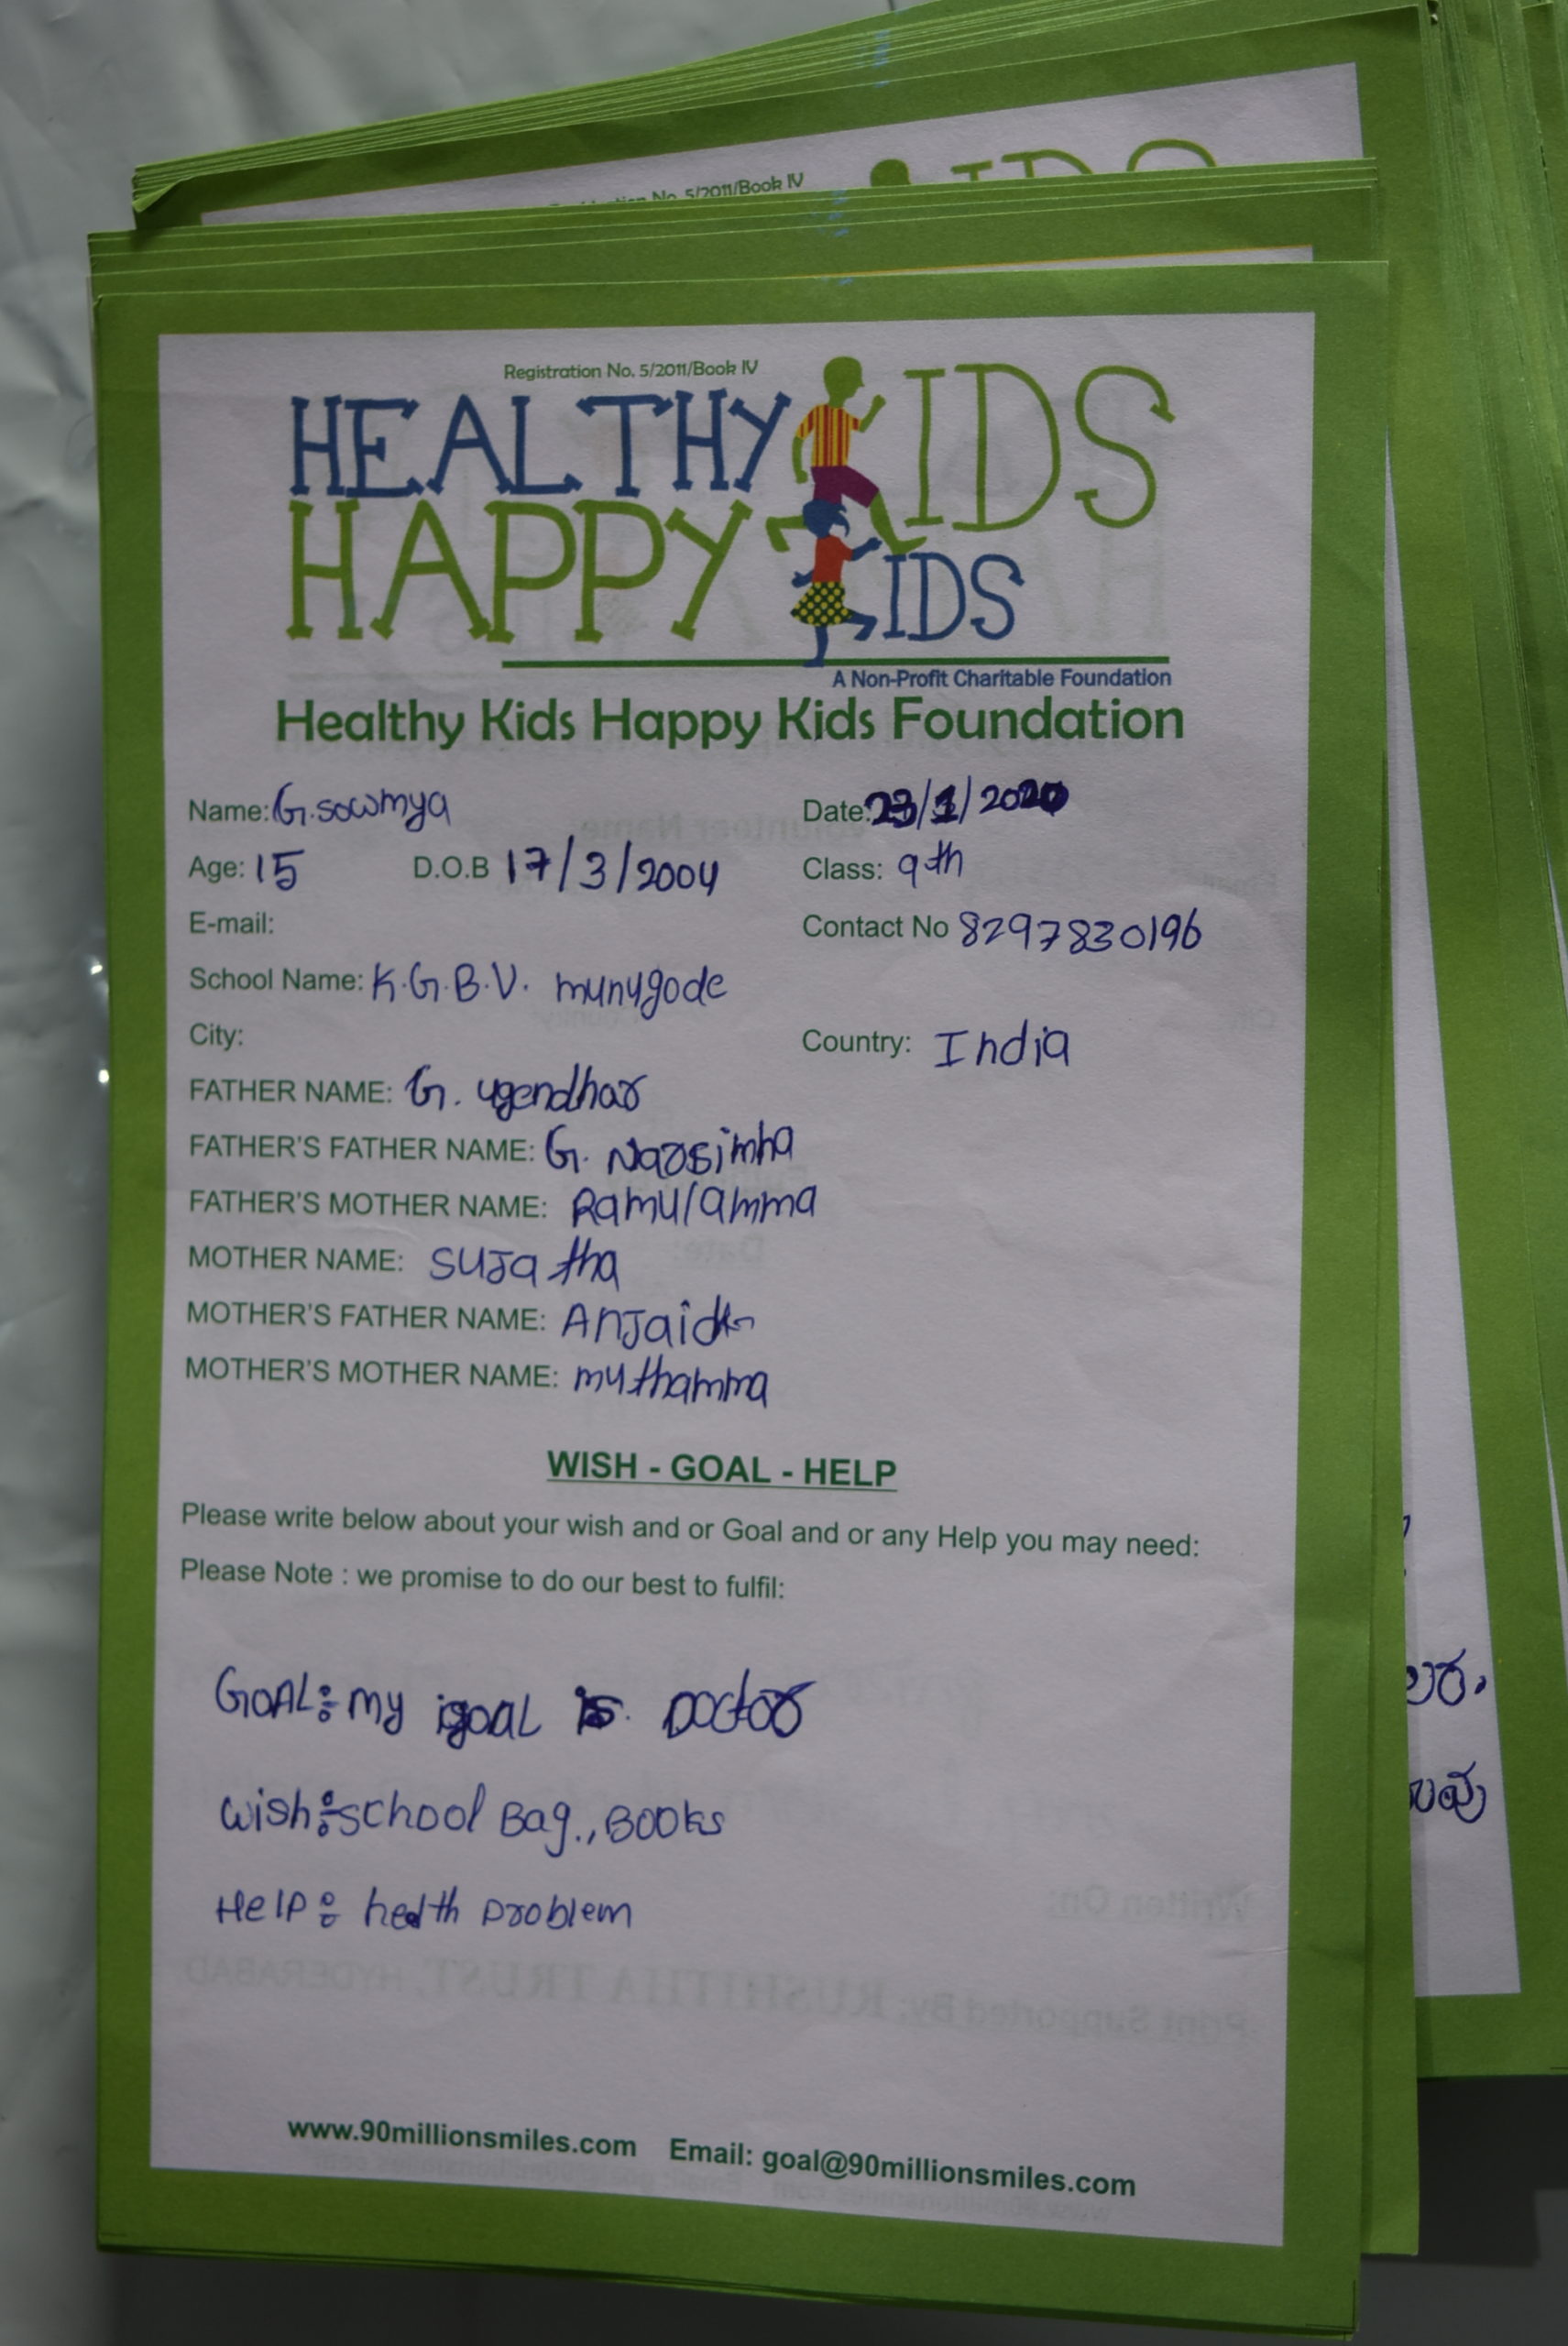 Registration No. 5/2011/Book IV
Registration No. 5/2011/Book IV
HEALTHY KIDS
HAPPY KIDS
A Non-Profit Charitable Foundation
Healthy Kids Happy Kids Foundation
Name: G.sowmya Date: 23/1/2020
Age: 15 D.O.B 17/3/2004 Class: 9th
E-mail: Contact No 8297830196
School Name: K.G.B.V. munygode
City: Country: India
FATHER NAME: G. ugendhar
FATHER'S FATHER NAME: G. Narsimha
FATHER'S MOTHER NAME: Ramulamma
MOTHER NAME: SUJatha
MOTHER'S FATHER NAME: Anjaiah
MOTHER'S MOTHER NAME: muthamma
WISH - GOAL - HELP
Please write below about your wish and or Goal and or any Help you may need:
Please Note : we promise to do our best to fulfil:
GOAL: my goal is Doctor
wish: school Bag., Books
Help: helth problem
www.90millionsmiles.com Email: goal@90millionsmiles.com